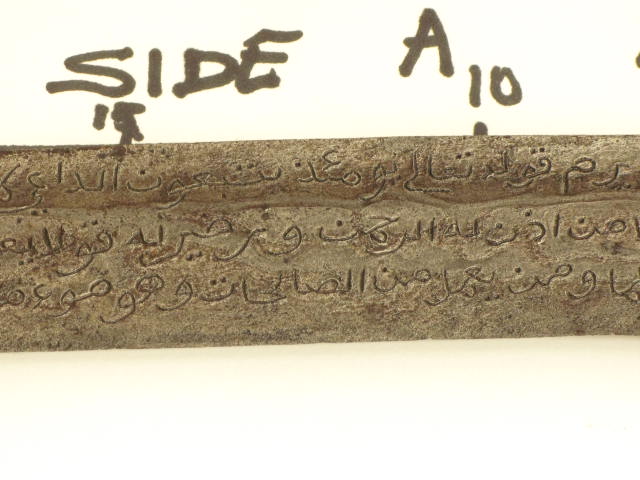 SIDE A 10
15
قوله تعالى يومئذ يتبعون الداعي
من اذن له الرحمن ورضي له قولا
ومن يعمل من الصالحات وهو